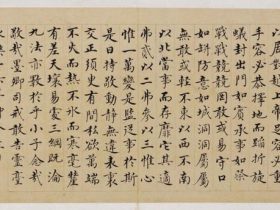 手容必恭擇地而蹈折旋
蟻封出門如賓承事如祭
戰戰兢兢罔敢或易守口
如缾防意如城洞洞屬屬
無敢或輕不東以西不南
以北當事而存靡它其適
弗貳以二弗參以三惟心
惟一萬變是監從事於斯
是曰持敬動靜無違表裏
交正須臾有間私欲萬端
不火而熱不冰而寒毫釐
有差天壤易處三綱既淪
九法亦斁於乎小子念哉
敬哉墨卿司戒敢告靈臺